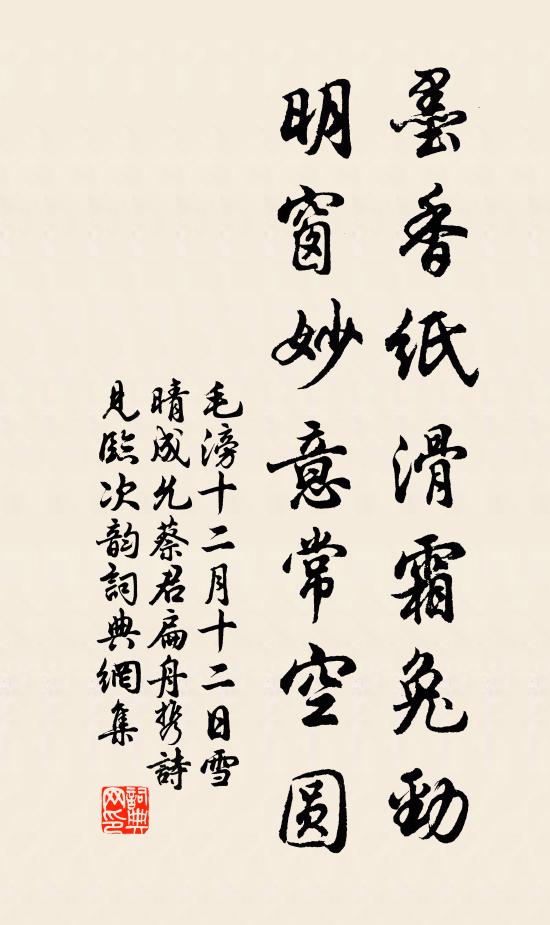 墨香紙滑霜兔勁
明窗妙意常空圓
毛滂十二月十二日雪
晴成允蔡君扁舟携詩
見臨次韵詞典網集
詞典網印